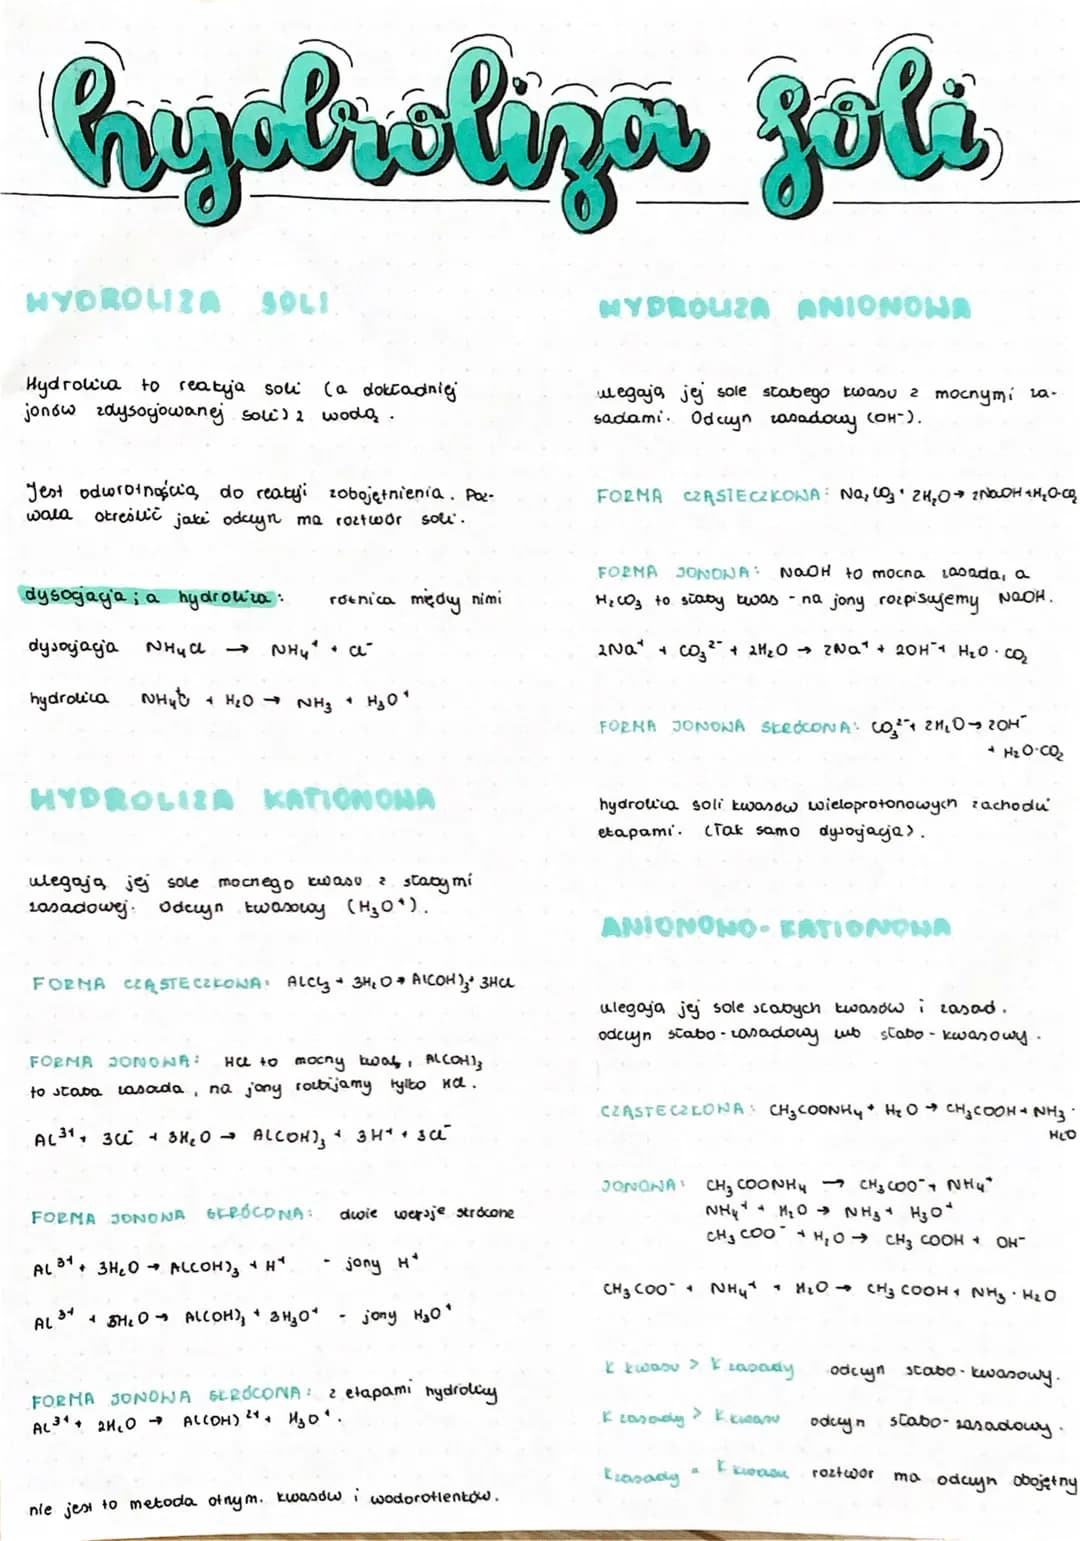 hydroliza soli
HYDROLIZA SOLI
Hydroliza to reakcja soli (a dokładniej
jonów zdysocjowanej soli) z wodą.
Jest odwrotnością do reakcji zobojętnienia. Poz-
wala określić jaki odczyn ma roztwór soli.
dysocjacja ; a hydroliza : różnica między nimi
dysocjacja NH4Cl → NH4⁺ + Cl⁻
hydroliza + H2O → NH3 + H3O⁺
HYDROLIZA KATIONOWA
ulegają jej sole mocnego kwasu z słabymi
zasadowej. Odczyn kwasowy (H3O⁺).
FORMA CZĄSTECZKOWA: AlCl3 + 3H2O → Al(OH)3 + 3HCl
FORMA JONOWA: HCl to mocny kwas, Al(OH)3
to słaba zasada, na jony rozbijamy tylko HCl.
Al³⁺ + 3Cl⁻ + 3H2O → Al(OH)3 + 3H⁺ + 3Cl⁻
FORMA JONOWA SKRÓCONA: dwie wersje skrócone
Al³⁺ + 3H2O → Al(OH)3 + H⁺ - jony H⁺
Al³⁺ + H2O → Al(OH)3 + 3H3O⁺ - jony H3O⁺
FORMA JONOWA SKRÓCONA: z etapami hydrolizy
Al³⁺ + 2H2O → Al(OH)²⁺ + H3O⁺.
nie jest to metoda otrzym. kwasów i wodorotlenków.
HYDROLIZA ANIONOWA
ulegają jej sole słabego kwasu z mocnymi za-
sadami. Odczyn zasadowy (OH⁻).
FORMA CZĄSTECZKOWA: Na2CO3 + 2H2O → 2NaOH + H2O·CO2
FORMA JONOWA: NaOH to mocna zasada, a
H2CO3 to słaby kwas - na jony rozpisujemy NaOH.
2Na⁺ + CO3²⁻ + 2H2O → 2Na⁺ + 2OH⁻ + H2O·CO2
FORMA JONOWA SKRÓCONA: CO3²⁻ + 2H2O → 2OH⁻
+ H2O·CO2
hydroliza soli kwasów wieloprotonowych zachodzi
etapami. (Tak samo dysocjacja).
ANIONOWO-KATIONOWA
ulegają jej sole słabych kwasów i zasad.
odczyn słabo-zasadowy lub słabo-kwasowy.
CZĄSTECZKOWA: CH3COONH4 + H2O → CH3COOH + NH3·
H2O
JONOWA: CH3COONH4 → CH3COO⁻ + NH4⁺
NH4⁺ + H2O → NH3 + H3O⁺
CH3COO⁻ + H2O → CH3COOH + OH⁻
CH3COO⁻ + NH4⁺ + H2O → CH3COOH + NH3·H2O
K kwasu > K zasady odczyn słabo-kwasowy.
K zasady > K kwasu odczyn słabo-zasadowy.
K zasady = K kwasu roztwór ma odczyn obojętny